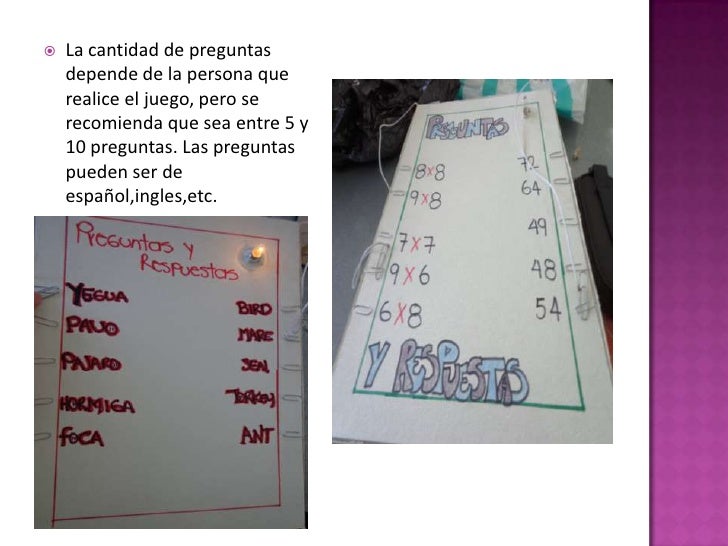 La cantidad de preguntas
depende de la persona que
realice el juego, pero se
recomienda que sea entre 5 y
10 preguntas. Las preguntas
pueden ser de
español,ingles,etc.
Preguntas y
Respuestas
YEGUA BIRD
PAVO MARE
PAJARO SEAL
HORMIGA TURKEY
FOCA ANT
PREGUNTAS
8x8 72
9x8 64
7x7 49
9x6 48
6x8 54
Y RESPUESTAS